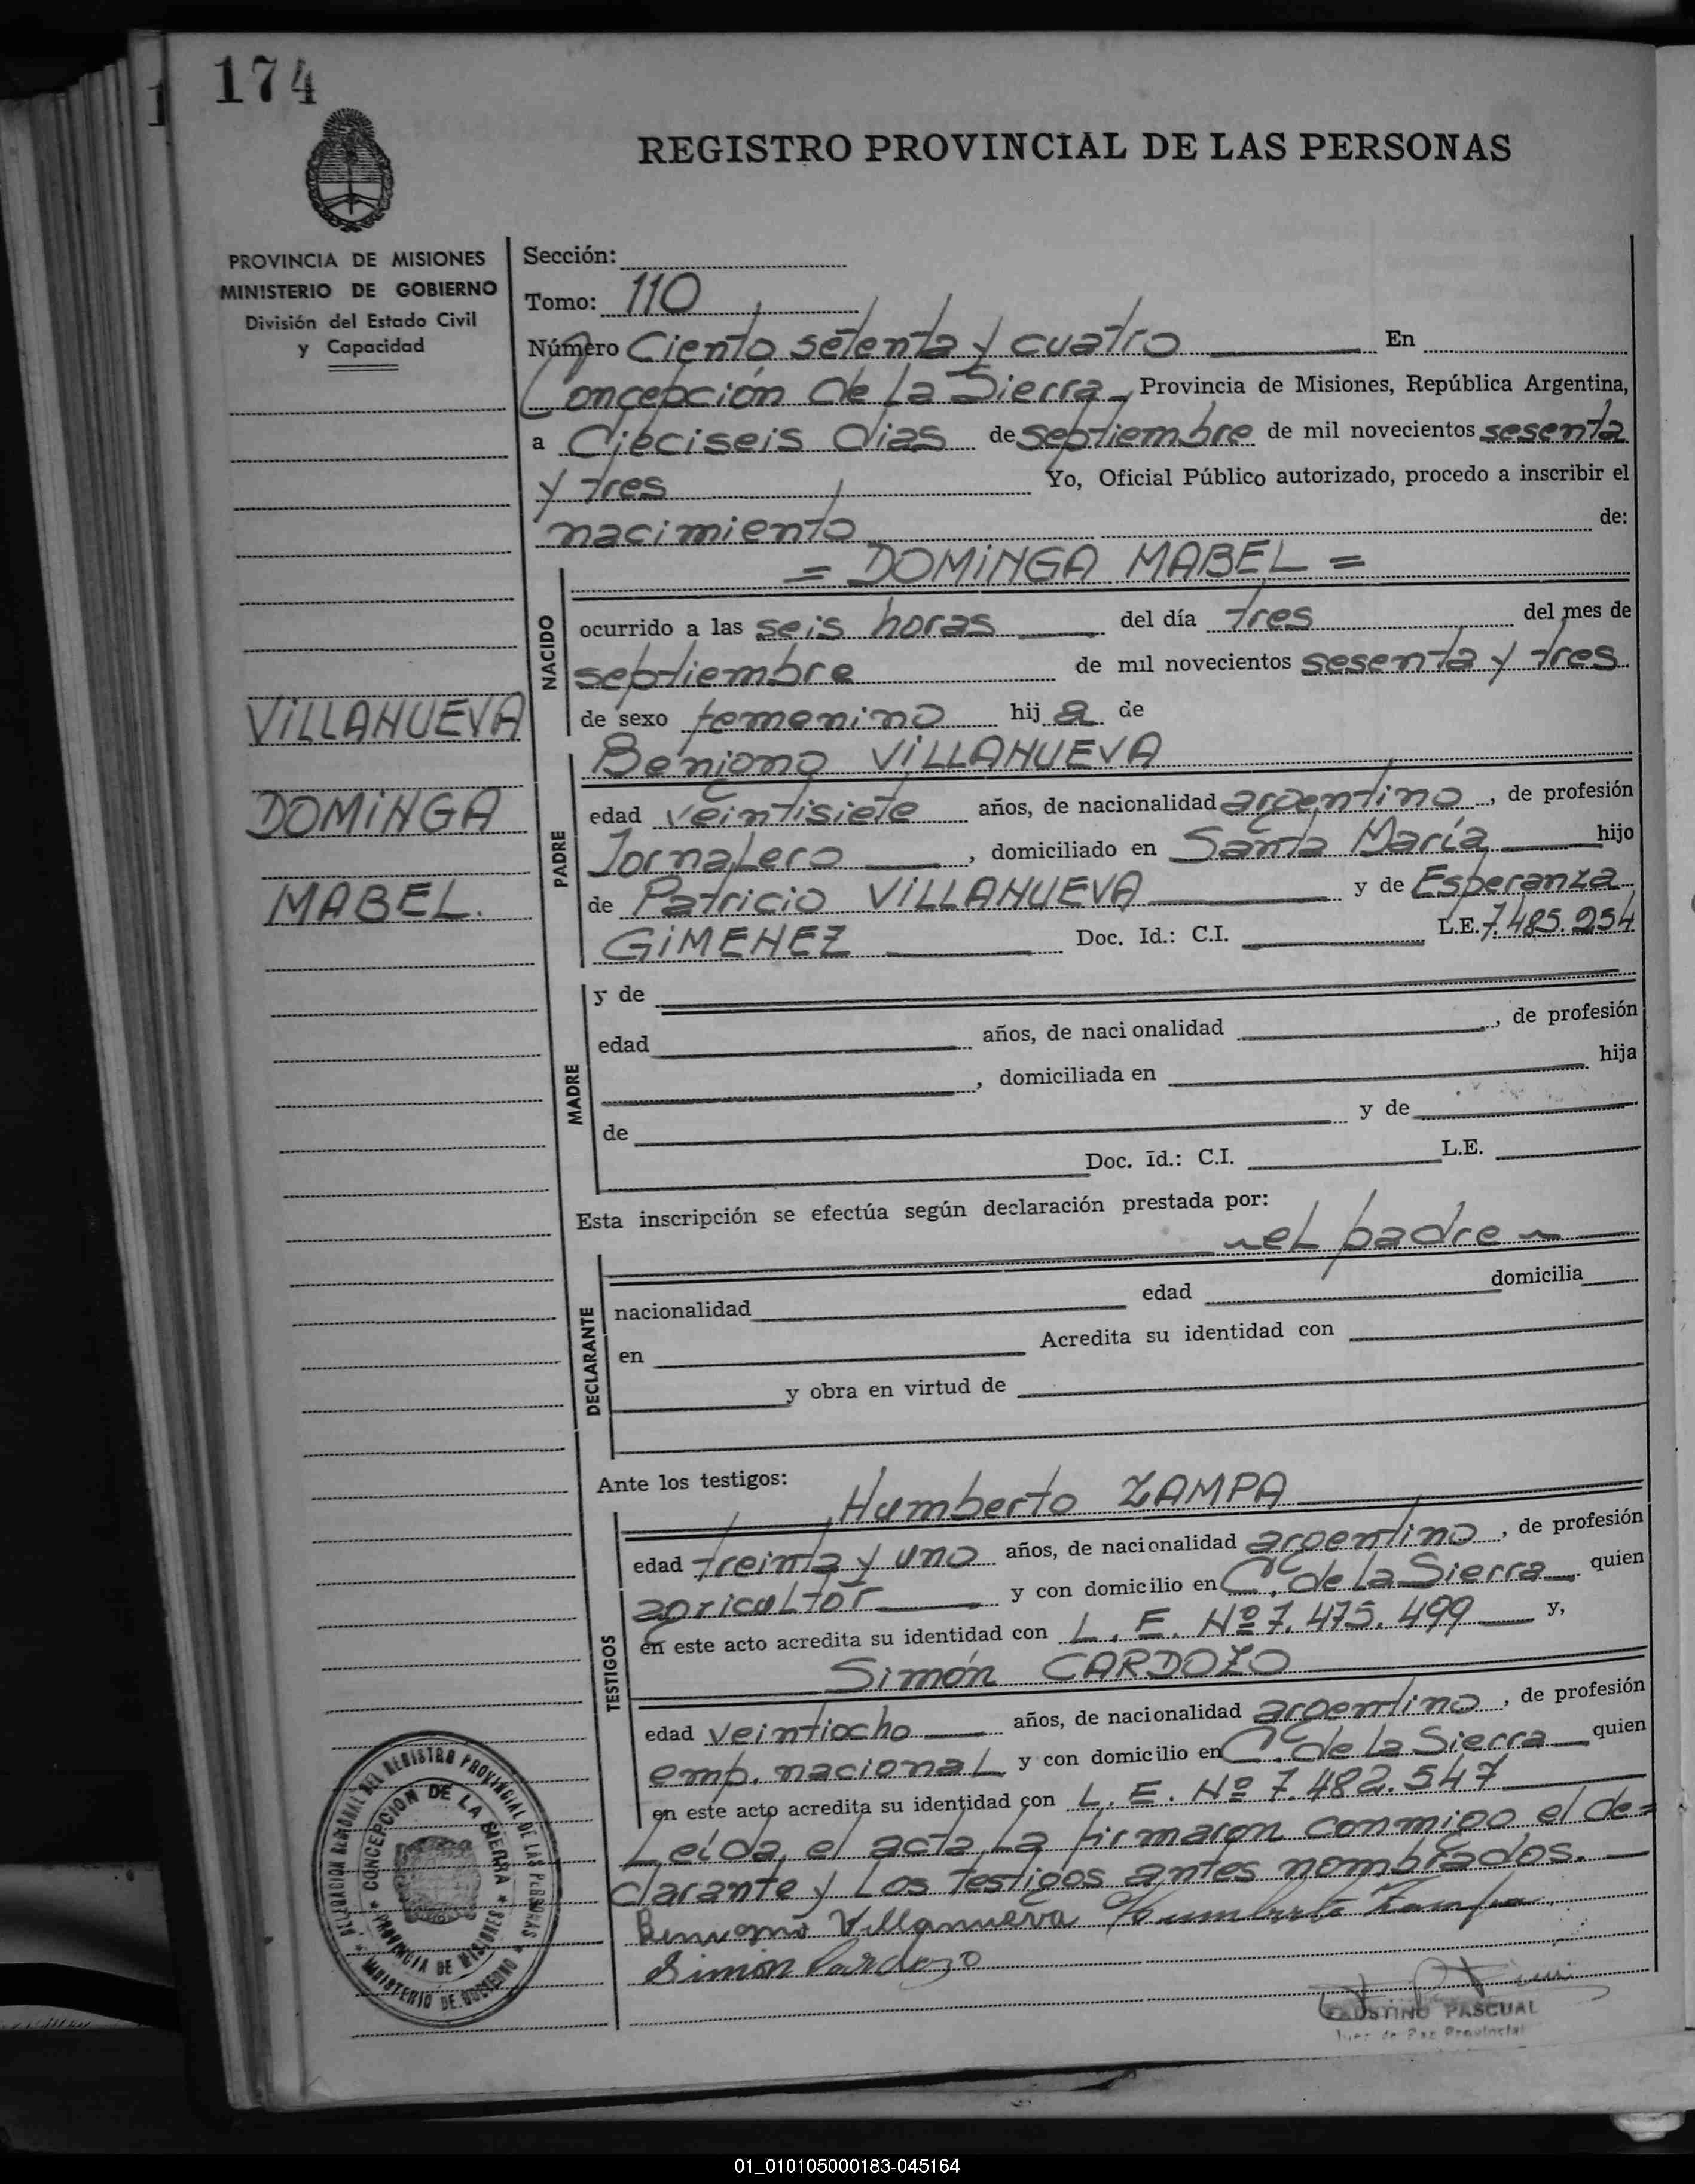 174
REGISTRO PROVINCIAL DE LAS PERSONAS
PROVINCIA DE MISIONES
MINISTERIO DE GOBIERNO
División del Estado Civil
y Capacidad
VILLANUEVA
DOMINGA
MABEL.
Sección:
Tomo: 110
Número Ciento setenta y cuatro En
Concepción de la Sierra, Provincia de Misiones, República Argentina,
a Dieciseis dias de septiembre de mil novecientos sesenta
y tres Yo, Oficial Público autorizado, procedo a inscribir el
nacimiento de:
= DOMINGA MABEL =
NACIDO
ocurrido a las seis horas del día tres del mes de
septiembre de mil novecientos sesenta y tres
de sexo femenino hij a de
PADRE
Benigno VILLANUEVA
edad veintisiete años, de nacionalidad argentino, de profesión
Jornalero, domiciliado en Santa María hijo
de Patricio VILLANUEVA y de Esperanza
GIMENEZ Doc. Id.: C.I. L.E. 7.485.254
MADRE
y de
edad años, de nacionalidad , de profesión
, domiciliada en hija
de y de
Doc. Id.: C.I. L.E.
Esta inscripción se efectúa según declaración prestada por:
el padre
DECLARANTE
nacionalidad edad domicilia
en Acredita su identidad con
y obra en virtud de
Ante los testigos:
Humberto ZAMPA
TESTIGOS
edad treinta y uno años, de nacionalidad argentino, de profesión
agricultor y con domicilio en C. de la Sierra quien
en este acto acredita su identidad con L.E. Nº 7.475.499 y,
Simón CARDOZO
edad veintiocho años, de nacionalidad argentino, de profesión
emp. nacional y con domicilio en C. de la Sierra quien
en este acto acredita su identidad con L.E. Nº 7.482.547
Leída el acta la firmaron conmigo el de=
clarante y los testigos antes nombrados.
Benigno Villanueva Humberto Zampa
Simón Cardozo
FAUSTINO PASCUAL
Juez de Paz Provincial
DELEGACION REGIONAL DEL REGISTRO PROVINCIAL DE LAS PERSONAS
MINISTERIO DE GOBIERNO
CONCEPCION DE LA SIERRA
PROVINCIA DE MISIONES
01_010105000183-045164